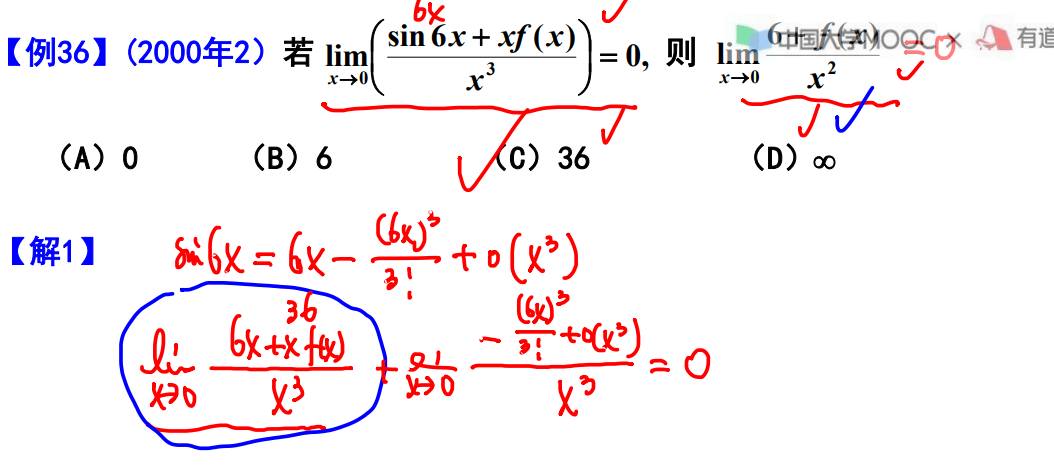 6x
【例36】(2000年2) 若 lim x→0 ( (sin 6x + xf(x)) / x³ ) = 0, 则 lim x→0 (6 + f(x)) / x² = 0
中国大学MOOC × 有道
(A) 0 (B) 6 (C) 36 (D) ∞
【解1】 sin 6x = 6x − (6x)³/3! + o(x³)
36
lim x→0 (6x + x f(x)) / x³ + lim x→0 (− (6x)³/3! + o(x³)) / x³ = 0